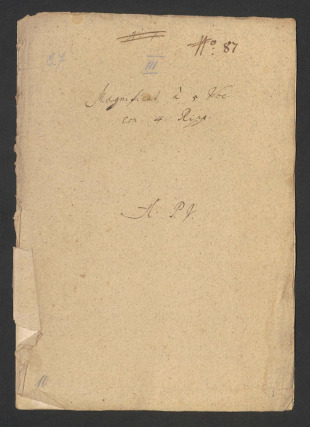 No. 87
27
III
Magnificat à 4 Voc
con 4 Ripp.
A. P. J.
10